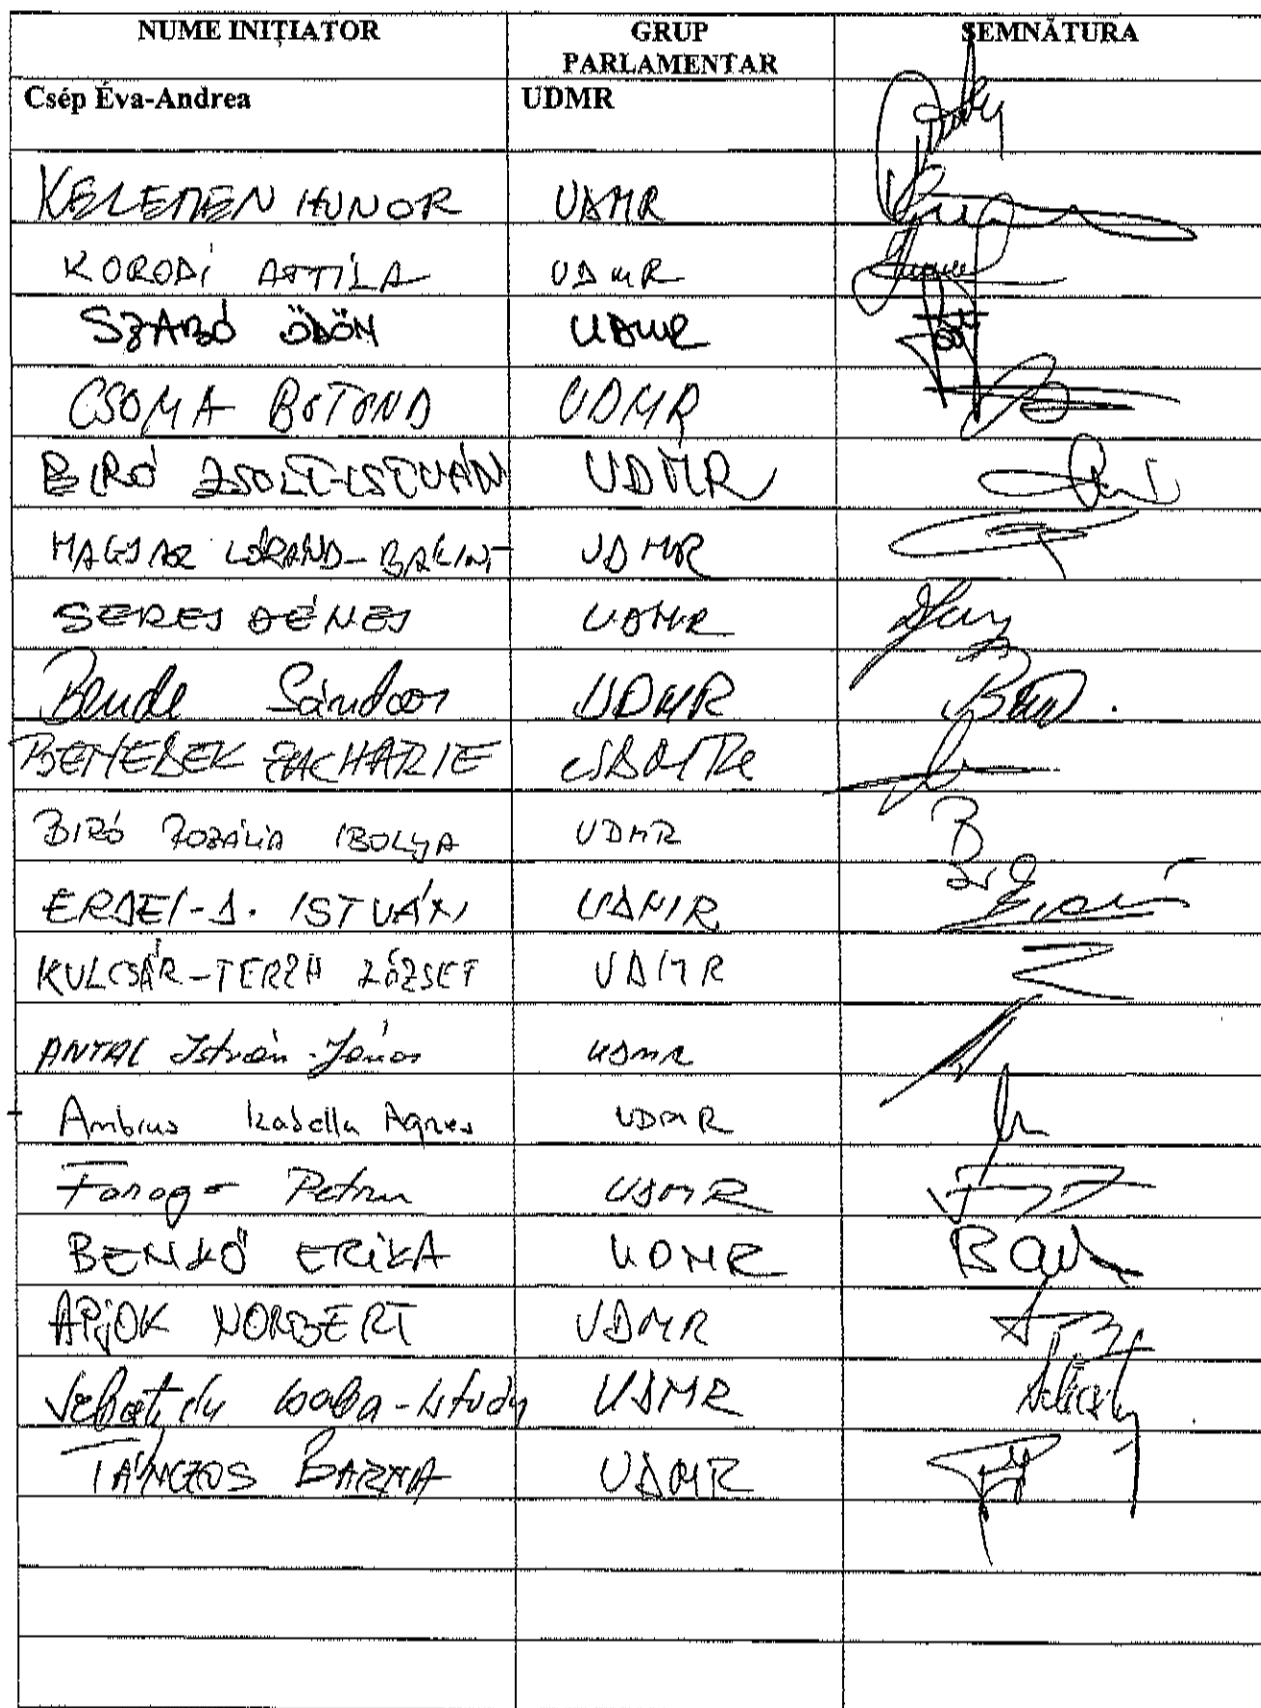 NUME INIȚIATOR GRUP PARLAMENTAR SEMNĂTURA
Csép Éva-Andrea UDMR
KELEMEN HUNOR UDMR
KORODI ATTILA UDMR
SZABÓ ÖDÖN UDMR
CSOMA BOTOND UDMR
BIRÓ ZSOLT-ISTVÁN UDMR
MAGYAR LORAND-BALINT UDMR
SERES DÉNES UDMR
Bende Sándor UDMR
BENEDEK ZACHARIE UDMR
BIRÓ ROZÁLIA IBOLYA UDMR
ERDEI-D. ISTVÁN UDMR
KULCSÁR-TERZA JÓZSEF UDMR
ANTAL István-János UDMR
Ambrus Izabella Agnes UDMR
Farago Petru UDMR
BENKŐ ERIKA UDMR
APJOK NORBERT UDMR
Sebestyén Csaba-István UDMR
TÁNCZOS BARNA UDMR